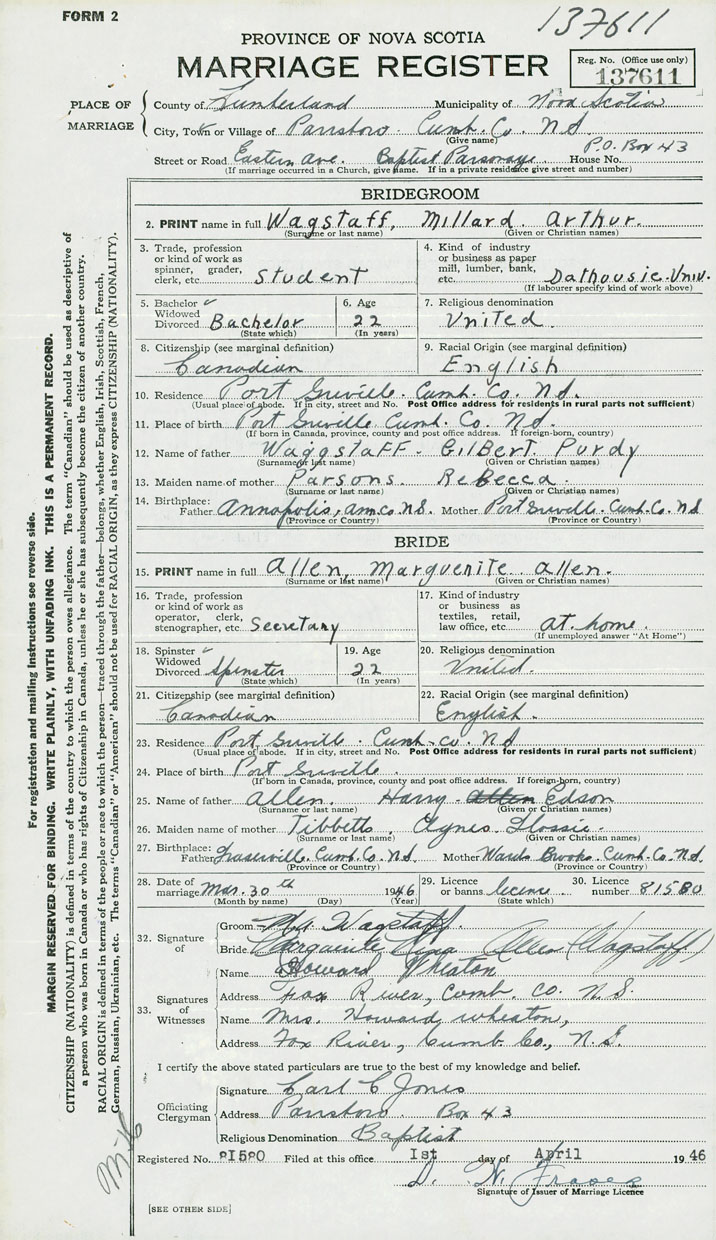 FORM 2
137611
PROVINCE OF NOVA SCOTIA
MARRIAGE REGISTER
Reg. No. (Office use only)
137611
PLACE OF MARRIAGE
County of Cumberland Municipality of Nova Scotia
City, Town or Village of Parrsboro Cumb. Co. N.S.
(Give name)
P.O. Box 43
Street or Road Eastern Ave. Baptist Parsonage House No.
(If marriage occurred in a Church, give name. If in a private residence give street and number)
BRIDEGROOM
2. PRINT name in full Wagstaff, Millard Arthur.
(Surname or last name) (Given or Christian names)
3. Trade, profession or kind of work as spinner, grader, clerk, etc. Student
4. Kind of industry or business as paper mill, lumber, bank, etc. Dalhousie Univ.
(If labourer specify kind of work above)
5. Bachelor Widowed Divorced Bachelor
(State which)
6. Age 22
(In years)
7. Religious denomination United.
8. Citizenship (see marginal definition) Canadian
9. Racial Origin (see marginal definition) English
10. Residence Port Greville. Cumb. Co. N.S.
(Usual place of abode. If in city, street and No. Post Office address for residents in rural parts not sufficient)
11. Place of birth Port Greville Cumb. Co. N.S.
(If born in Canada, province, county and post office address. If foreign-born, country)
12. Name of father Waggstaff - Gilbert Purdy
(Surname or last name) (Given or Christian names)
13. Maiden name of mother Parsons Rebecca.
(Surname or last name) (Given or Christian names)
14. Birthplace: Father Annapolis, Ann. Co. N.S. Mother Port Greville. Cumb. Co. N.S.
(Province or Country) (Province or Country)
BRIDE
15. PRINT name in full Allen, Marguerite Allen.
(Surname or last name) (Given or Christian names)
16. Trade, profession or kind of work as operator, clerk, stenographer, etc Secretary
17. Kind of industry or business as textiles, retail, law office, etc. at home.
(If unemployed answer "At Home")
18. Spinster Widowed Divorced Spinster
(State which)
19. Age 22
(In years)
20. Religious denomination United.
21. Citizenship (see marginal definition) Canadian
22. Racial Origin (see marginal definition) English.
23. Residence Port Greville. Cumb. Co. N.S.
(Usual place of abode. If in city, street and No. Post Office address for residents in rural parts not sufficient)
24. Place of birth Port Greville.
(If born in Canada, province, county and post office address. If foreign-born, country)
25. Name of father Allen. Harry Allen Edson
(Surname or last name) (Given or Christian names)
26. Maiden name of mother Tibbetts. Agnes Flossie.
(Surname or last name) (Given or Christian names)
27. Birthplace: Father Fraserville. Cumb. Co. N.S. Mother Wards Brook. Cumb. Co. N.S.
(Province or Country) (Province or Country)
28. Date of marriage Mar. 30th 1946
(Month by name) (Day) (Year)
29. Licence or banns licence
(State which)
30. Licence number 81580
32. Signature of
Groom Wagstaff.
Bride Marguerite Allen (Wagstaff)
33. Signatures of Witnesses
Name Howard Wheaton
Address Fox River, Cumb. Co. N.S.
Name Mrs. Howard Wheaton,
Address Fox River, Cumb Co., N.S.
I certify the above stated particulars are true to the best of my knowledge and belief.
Officiating Clergyman
Signature Carl C Jones
Address Parrsboro Box 43
Religious Denomination Baptist
Registered No. 81580 Filed at this office 1st day of April 1946
D. N.
Signature of Issuer of Marriage Licence
[SEE OTHER SIDE]
For registration and mailing instructions see reverse side.
MARGIN RESERVED FOR BINDING. WRITE PLAINLY, WITH UNFADING INK. THIS IS A PERMANENT RECORD.
CITIZENSHIP (NATIONALITY) is defined in terms of the country to which the person owes allegiance. The term "Canadian" should be used as descriptive of
a person who was born in Canada or who has rights of Citizenship in Canada, unless he or she has subsequently become the citizen of another country.
RACIAL ORIGIN is defined in terms of the people or race to which the person—traced through the father—belongs, whether English, Irish, Scottish, French,
German, Russian, Ukrainian, etc. The terms "Canadian" or "American" should not be used for RACIAL ORIGIN, as they express CITIZENSHIP (NATIONALITY).